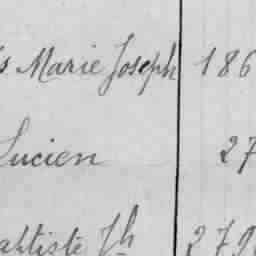 s Marie Joseph 186
Lucien 27
aptiste Jh 279